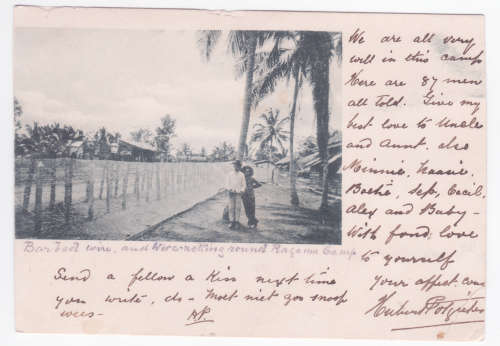 We are all very
well in this camp
Here are 87 men
all told. Give my
best love to Uncle
and Aunt, also
Minnie,
Cecil,
Alex and Baby-
With fond love
to yourself
Your affect. cous
Barbed wire, and Wire netting round Ragama Camp
Send a fellow a Kiss next time
you write, do - Moet niet zoo snoop
wees-
HP.